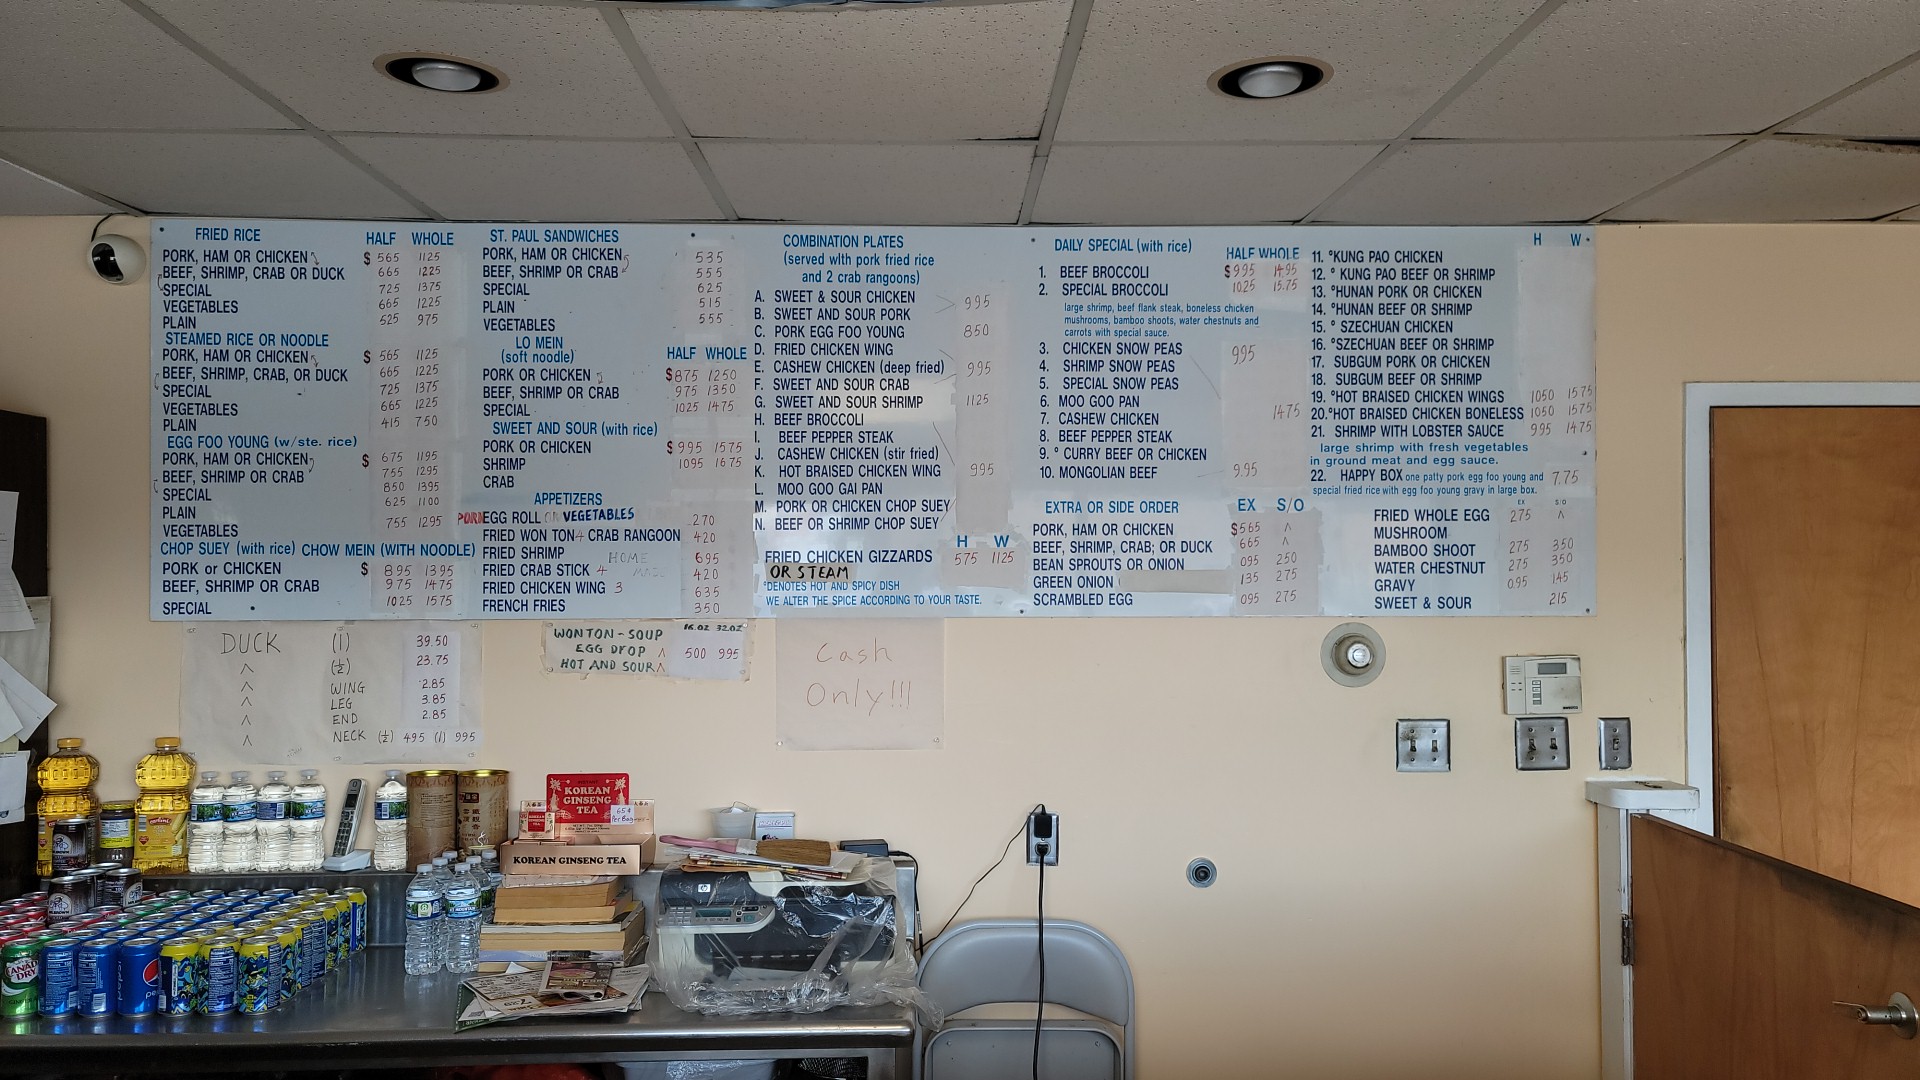 FRIED RICE HALF WHOLE
PORK, HAM OR CHICKEN $ 565 1125
BEEF, SHRIMP, CRAB OR DUCK 665 1225
SPECIAL 725 1375
VEGETABLES 665 1225
PLAIN 525 975
STEAMED RICE OR NOODLE
PORK, HAM OR CHICKEN $ 565 1125
BEEF, SHRIMP, CRAB, OR DUCK 665 1225
SPECIAL 725 1375
VEGETABLES 665 1225
PLAIN 415 750
EGG FOO YOUNG (w/ste. rice)
PORK, HAM OR CHICKEN $ 675 1195
BEEF, SHRIMP OR CRAB 755 1295
SPECIAL 850 1395
PLAIN 625 1100
VEGETABLES 755 1295
CHOP SUEY (with rice) CHOW MEIN (WITH NOODLE)
PORK or CHICKEN $ 895 1395
BEEF, SHRIMP OR CRAB 975 1475
SPECIAL 1025 1575
ST. PAUL SANDWICHES
PORK, HAM OR CHICKEN 535
BEEF, SHRIMP OR CRAB 555
SPECIAL 625
PLAIN 515
VEGETABLES 555
LO MEIN
(soft noodle) HALF WHOLE
PORK OR CHICKEN $875 1250
BEEF, SHRIMP OR CRAB 975 1350
SPECIAL 1025 1475
SWEET AND SOUR (with rice)
PORK OR CHICKEN $995 1575
SHRIMP 1095 1675
CRAB
APPETIZERS
PORK EGG ROLL OR VEGETABLES 270
FRIED WON TON 4 CRAB RANGOON 420
FRIED SHRIMP HOME 695
FRIED CRAB STICK 4 420
FRIED CHICKEN WING 3 635
FRENCH FRIES 350
COMBINATION PLATES
(served with pork fried rice
and 2 crab rangoons)
A. SWEET & SOUR CHICKEN 995
B. SWEET AND SOUR PORK
C. PORK EGG FOO YOUNG 850
D. FRIED CHICKEN WING
E. CASHEW CHICKEN (deep fried) 995
F. SWEET AND SOUR CRAB
G. SWEET AND SOUR SHRIMP 1125
H. BEEF BROCCOLI
I. BEEF PEPPER STEAK
J. CASHEW CHICKEN (stir fried)
K. HOT BRAISED CHICKEN WING 995
L. MOO GOO GAI PAN
M. PORK OR CHICKEN CHOP SUEY
N. BEEF OR SHRIMP CHOP SUEY
H W
FRIED CHICKEN GIZZARDS 575 1125
OR STEAM
°DENOTES HOT AND SPICY DISH
WE ALTER THE SPICE ACCORDING TO YOUR TASTE.
DAILY SPECIAL (with rice) HALF WHOLE
1. BEEF BROCCOLI $995 14.95
2. SPECIAL BROCCOLI 1025 15.75
large shrimp, beef flank steak, boneless chicken
mushrooms, bamboo shoots, water chestnuts and
carrots with special sauce.
3. CHICKEN SNOW PEAS 995
4. SHRIMP SNOW PEAS
5. SPECIAL SNOW PEAS
6. MOO GOO PAN 1475
7. CASHEW CHICKEN
8. BEEF PEPPER STEAK
9. ° CURRY BEEF OR CHICKEN
10. MONGOLIAN BEEF 9.95
EXTRA OR SIDE ORDER EX S/O
PORK, HAM OR CHICKEN $565 ^
BEEF, SHRIMP, CRAB; OR DUCK 665 ^
BEAN SPROUTS OR ONION 095 250
GREEN ONION 135 275
SCRAMBLED EGG 095 275
H W
11. °KUNG PAO CHICKEN
12. ° KUNG PAO BEEF OR SHRIMP
13. °HUNAN PORK OR CHICKEN
14. °HUNAN BEEF OR SHRIMP
15. ° SZECHUAN CHICKEN
16. °SZECHUAN BEEF OR SHRIMP
17. SUBGUM PORK OR CHICKEN
18. SUBGUM BEEF OR SHRIMP
19. °HOT BRAISED CHICKEN WINGS 1050 1575
20. °HOT BRAISED CHICKEN BONELESS 1050 1575
21. SHRIMP WITH LOBSTER SAUCE 995 1475
large shrimp with fresh vegetables
in ground meat and egg sauce.
22. HAPPY BOX one patty pork egg foo young and 7.75
special fried rice with egg foo young gravy in large box.
EX S/O
FRIED WHOLE EGG 275 ^
MUSHROOM
BAMBOO SHOOT 275 350
WATER CHESTNUT 275 350
GRAVY 095 145
SWEET & SOUR 215
DUCK (1) 39.50
^ (½) 23.75
^ WING 2.85
^ LEG 3.85
^ END 2.85
^ NECK (½) 495 (1) 995
16.OZ 32.OZ
WONTON-SOUP
EGG DROP ^ 500 995
HOT AND SOUR ^
Cash
Only!!!
KOREAN
GINSENG
TEA
65¢
Per Bag
KOREAN GINSENG TEA
hp
CANADA
DRY
pepsi